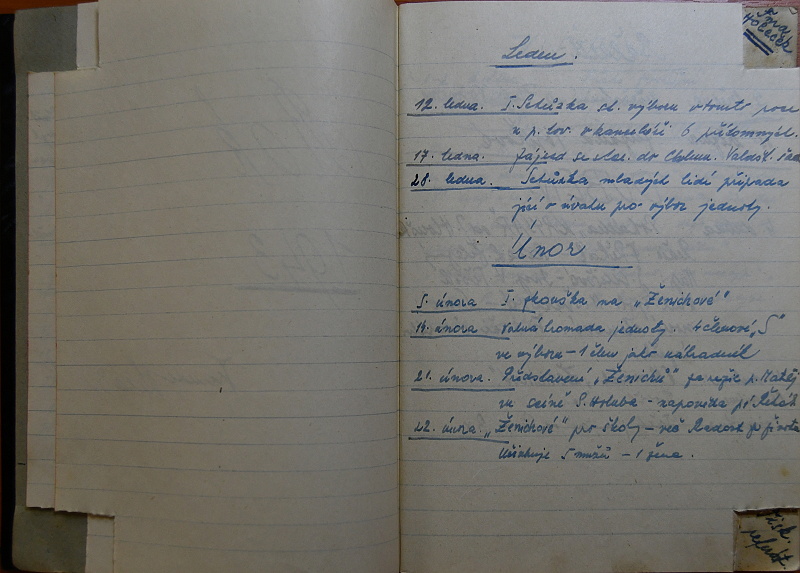 Leden.
12. ledna. I. Schůzka st. výboru v tomto roce
u p. tov. v kanceláři 6 přítomných.
17. ledna. Zájezd se slac. do Chlumu. Valdšt.
28. ledna. Schůzka mladých lidí připada
jící v úvahu pro výbor jednoty.
Únor
5. února I. zkouška na „Ženichové"
14. února Valná hromada jednoty. 4 členové „S"
ve výboru – 1 člen jako náhradník
21. února. Představení „Ženichů" za režie p. Matěj
ve scéně S. Holuba – napovídá
22. února. „Ženichové" pro školy – več Radost ze života
Účinkuje 5 mužů – 1 žena.
Holeček